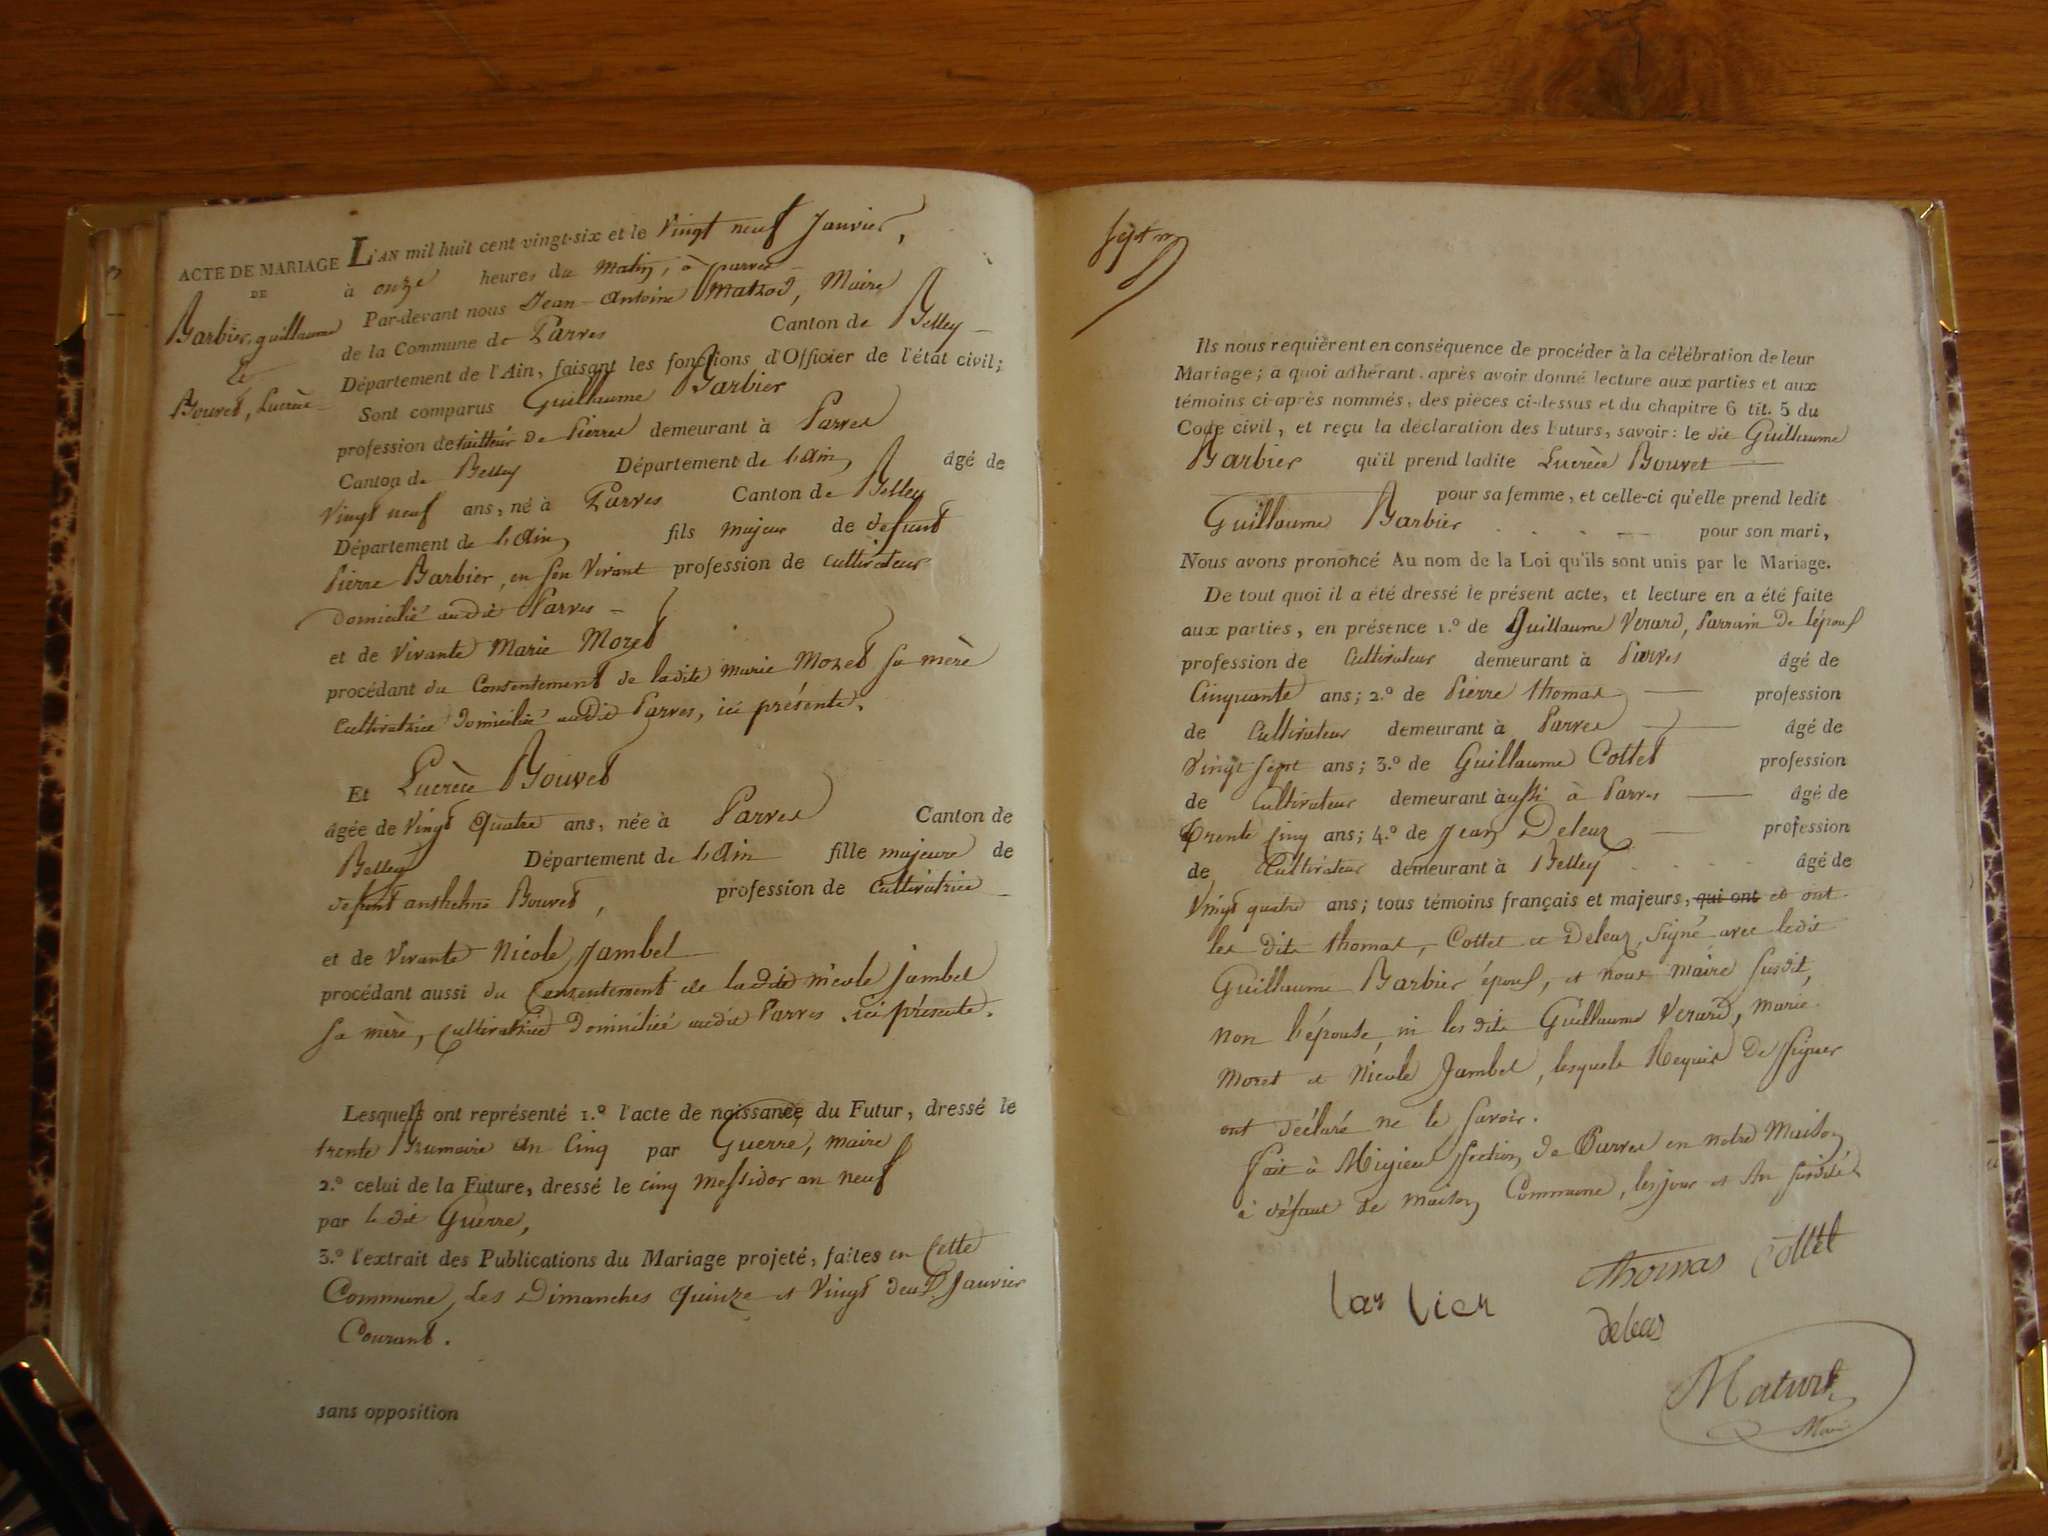 ACTE DE MARIAGE
DE
Barbier, guillaume
Et
Bouvet, Lucrèce
L'AN mil huit cent vingt-six et le Vingt neuf Janvier,
à onze heures du Matin, à parves
Par-devant nous Jean-Antoine Maire
de la Commune de Parves Canton de Belley
Département de l'Ain, faisant les fonctions d'Officier de l'état civil;
Sont comparus Guillaume Barbier
profession de tailleur de Pierres demeurant à Parves
Canton de Belley Département de L'Ain, âgé de
Vingt neuf ans, né à Parves Canton de Belley
Département de L'Ain, fils majeur de defunt
Pierre Barbier, en son Vivant profession de Cultivateur
Domicilié audit Parves
et de Vivante Marie Moret
procédant du Consentement de ladite marie Moret sa mère
Cultivatrice Domiciliée audit Parves, ici présente.
Et Lucrèce Bouvet
âgée de Vingt Quatre ans, née à Parves Canton de
Belley Département de L'Ain fille majeure de
defunt anthelme Bouvet, profession de Cultivatrice
et de Vivante Nicole Jambet
procédant aussi du Consentement de ladite nicole Jambet
sa mère, Cultivatrice Domiciliée audit Parves ici présente.
Lesquels ont représenté 1.º l'acte de naissance du Futur, dressé le
trente Brumaire An Cinq par Guerre, maire
2.º celui de la Future, dressé le cinq Messidor an neuf
par le dit Guerre,
3.º l'extrait des Publications du Mariage projeté, faites en Cette
Commune, Les Dimanches Quinze et Vingt deux Janvier
Courant.
sans opposition
sept
Ils nous requièrent en conséquence de procéder à la célébration de leur
Mariage; a quoi adhérant, après avoir donné lecture aux parties et aux
témoins ci-après nommés, des pièces ci-dessus et du chapitre 6 tit. 5 du
Code civil, et reçu la déclaration des Futurs, savoir: le dit Guillaume
Barbier qu'il prend ladite Lucrèce Bouvet
pour sa femme, et celle-ci qu'elle prend ledit
Guillaume Barbier pour son mari,
Nous avons prononcé Au nom de la Loi qu'ils sont unis par le Mariage.
De tout quoi il a été dressé le présent acte, et lecture en a été faite
aux parties, en présence 1.º de Guillaume Verard, Parrain de l'époux
profession de Cultivateur demeurant à Parves âgé de
Cinquante ans; 2.º de Pierre thomas profession
de Cultivateur demeurant à Parves âgé de
Vingt sept ans; 3.º de Guillaume Cottet profession
de Cultivateur demeurant aussi à Parves âgé de
trente cinq ans; 4.º de Jean Deleaz profession
de Cultivateur demeurant à Belley âgé de
Vingt quatre ans; tous témoins français et majeurs, qui ont et ont
les dits thomas, Cottet et Deleaz, signé avec ledit
Guillaume Barbier époux, et nous maire susdit,
non l'épouse, ni les dits Guillaume Verard, marie
Moret et Nicole Jambet, lesquels Requis de signer
ont déclaré ne le savoir.
fait à Migieu section de Parves en notre Maison
à défaut de maison Commune, les jour et An susdits
Thomas Cottet
bar bier
deleas
Maire